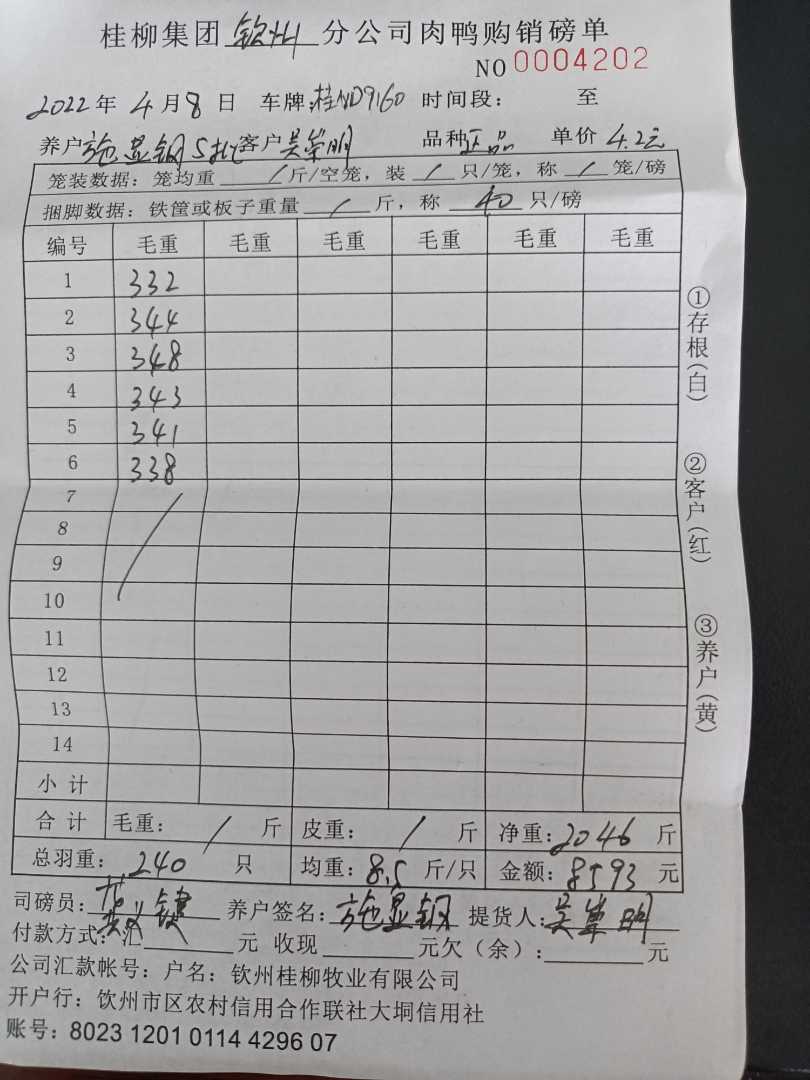 桂柳集团 钦州 分公司肉鸭购销磅单
NO 0004202
2022年 4月8日 车牌:桂ND9160 时间段: 至
养户 施显钢 5批 客户 吴崇明 品种 正品 单价 4.2元
笼装数据: 笼均重 / 斤/空笼, 装 / 只/笼, 称 / 笼/磅
捆脚数据: 铁筐或板子重量 / 斤, 称 40 只/磅
编号 毛重 毛重 毛重 毛重 毛重 毛重
1 332
2 344
3 348
4 343
5 341
6 338
7
8
9
10
11
12
13
14
小计
合计 毛重: / 斤 皮重: / 斤 净重: 2046 斤
总羽重: 240 只 均重: 8.5 斤/只 金额: 8593 元
司磅员: 养户签名: 施显钢 提货人: 吴崇明
付款方式: 汇 元 收现 元欠(余): 元
公司汇款帐号: 户名: 钦州桂柳牧业有限公司
开户行: 钦州市区农村信用合作联社大垌信用社
账号: 8023 1201 0114 4296 07
①存根(白)
②客户(红)
③养户(黄)